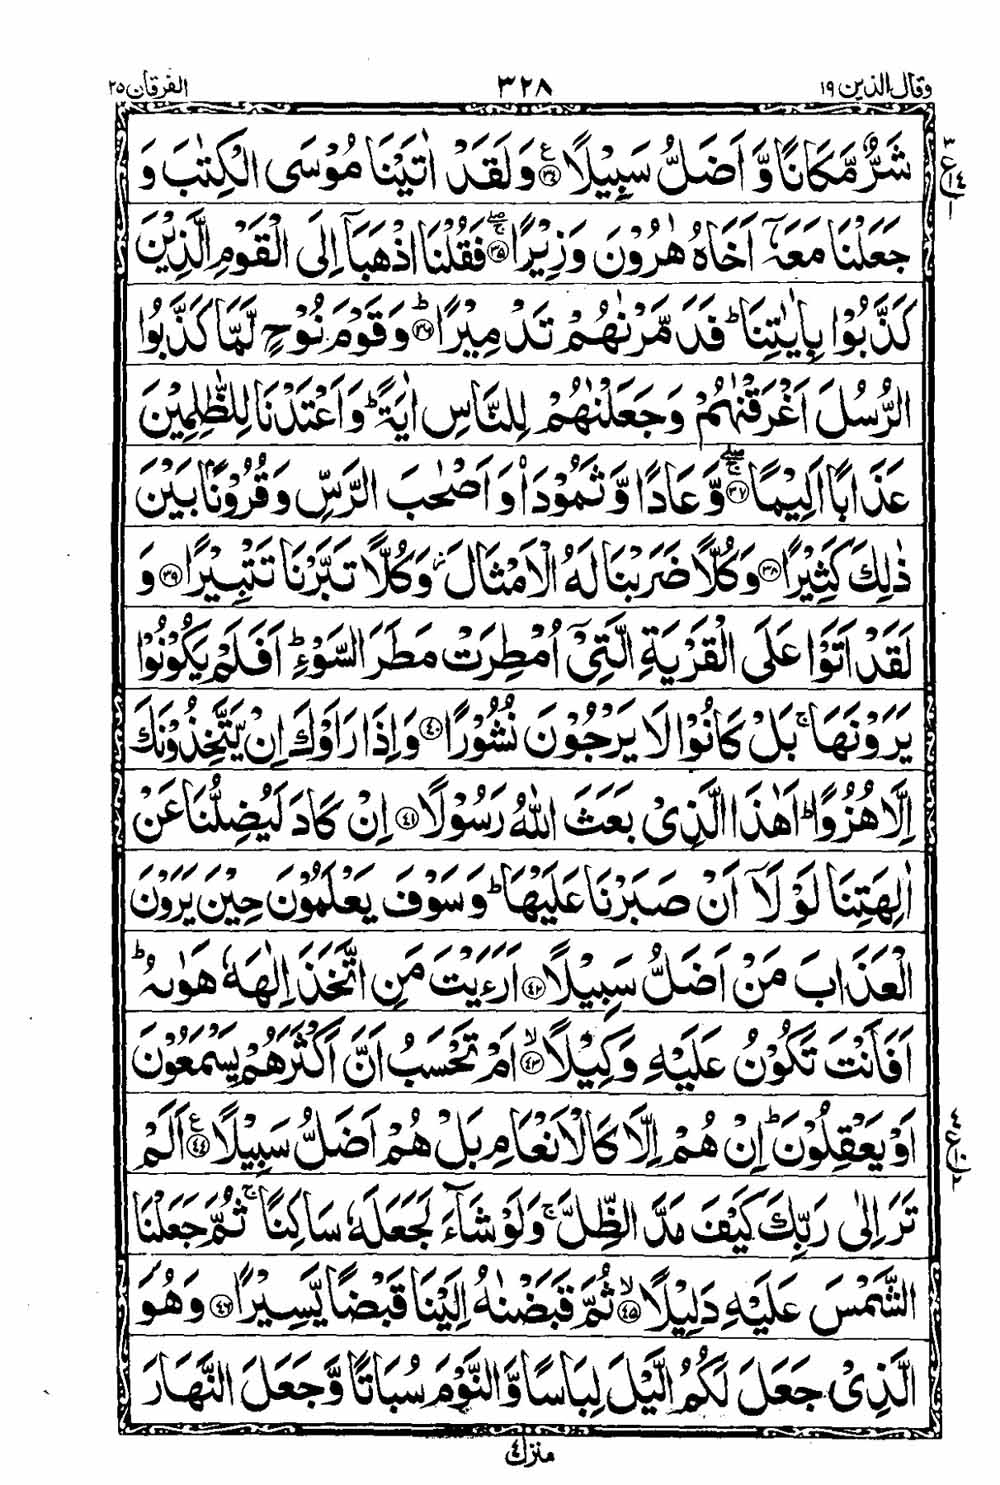 وقال الذین ۱۹
۳۲۸
الفرقان ۲۵
شَرٌّ مَّكَانًا وَّ اَضَلُّ سَبِیْلًا ﴿۳۴﴾ ع وَ لَقَدْ اٰتَیْنَا مُوْسَی الْكِتٰبَ وَ
جَعَلْنَا مَعَهٗۤ اَخَاهُ هٰرُوْنَ وَزِیْرًا ﴿۳۵﴾ ۚۖ فَقُلْنَا اذْهَبَاۤ اِلَی الْقَوْمِ الَّذِیْنَ
كَذَّبُوْا بِاٰیٰتِنَا ؕ فَدَمَّرْنٰهُمْ تَدْمِیْرًا ﴿۳۶﴾ ؕ وَ قَوْمَ نُوْحٍ لَّمَّا كَذَّبُوا
الرُّسُلَ اَغْرَقْنٰهُمْ وَ جَعَلْنٰهُمْ لِلنَّاسِ اٰیَةً ؕ وَ اَعْتَدْنَا لِلظّٰلِمِیْنَ
عَذَابًا اَلِیْمًا ﴿۳۷﴾ ۚۖ وَّ عَادًا وَّ ثَمُوْدَاۡ وَ اَصْحٰبَ الرَّسِّ وَ قُرُوْنًۢا بَیْنَ
ذٰلِكَ كَثِیْرًا ﴿۳۸﴾ وَ كُلًّا ضَرَبْنَا لَهُ الْاَمْثَالَ ؗ وَ كُلًّا تَبَّرْنَا تَتْبِیْرًا ﴿۳۹﴾ وَ
لَقَدْ اَتَوْا عَلَی الْقَرْیَةِ الَّتِیْۤ اُمْطِرَتْ مَطَرَ السَّوْءِ ؕ اَفَلَمْ یَكُوْنُوْا
یَرَوْنَهَا ۚ بَلْ كَانُوْا لَا یَرْجُوْنَ نُشُوْرًا ﴿۴۰﴾ وَ اِذَا رَاَوْكَ اِنْ یَّتَّخِذُوْنَكَ
اِلَّا هُزُوًا ؕ اَهٰذَا الَّذِیْ بَعَثَ اللّٰهُ رَسُوْلًا ﴿۴۱﴾ اِنْ كَادَ لَیُضِلُّنَا عَنْ
اٰلِهَتِنَا لَوْ لَاۤ اَنْ صَبَرْنَا عَلَیْهَا ؕ وَ سَوْفَ یَعْلَمُوْنَ حِیْنَ یَرَوْنَ
الْعَذَابَ مَنْ اَضَلُّ سَبِیْلًا ﴿۴۲﴾ اَرَءَیْتَ مَنِ اتَّخَذَ اِلٰهَهٗ هَوٰىهُ ؕ
اَفَاَنْتَ تَكُوْنُ عَلَیْهِ وَكِیْلًا ﴿۴۳﴾ ۙ اَمْ تَحْسَبُ اَنَّ اَكْثَرَهُمْ یَسْمَعُوْنَ
اَوْ یَعْقِلُوْنَ ؕ اِنْ هُمْ اِلَّا كَالْاَنْعَامِ بَلْ هُمْ اَضَلُّ سَبِیْلًا ﴿۴۴﴾ ع اَلَمْ
تَرَ اِلٰی رَبِّكَ كَیْفَ مَدَّ الظِّلَّ ۚ وَ لَوْ شَآءَ لَجَعَلَهٗ سَاكِنًا ۚ ثُمَّ جَعَلْنَا
الشَّمْسَ عَلَیْهِ دَلِیْلًا ﴿۴۵﴾ ۙ ثُمَّ قَبَضْنٰهُ اِلَیْنَا قَبْضًا یَّسِیْرًا ﴿۴۶﴾ وَ هُوَ
الَّذِیْ جَعَلَ لَكُمُ الَّیْلَ لِبَاسًا وَّ النَّوْمَ سُبَاتًا وَّ جَعَلَ النَّهَارَ
منزل ۴